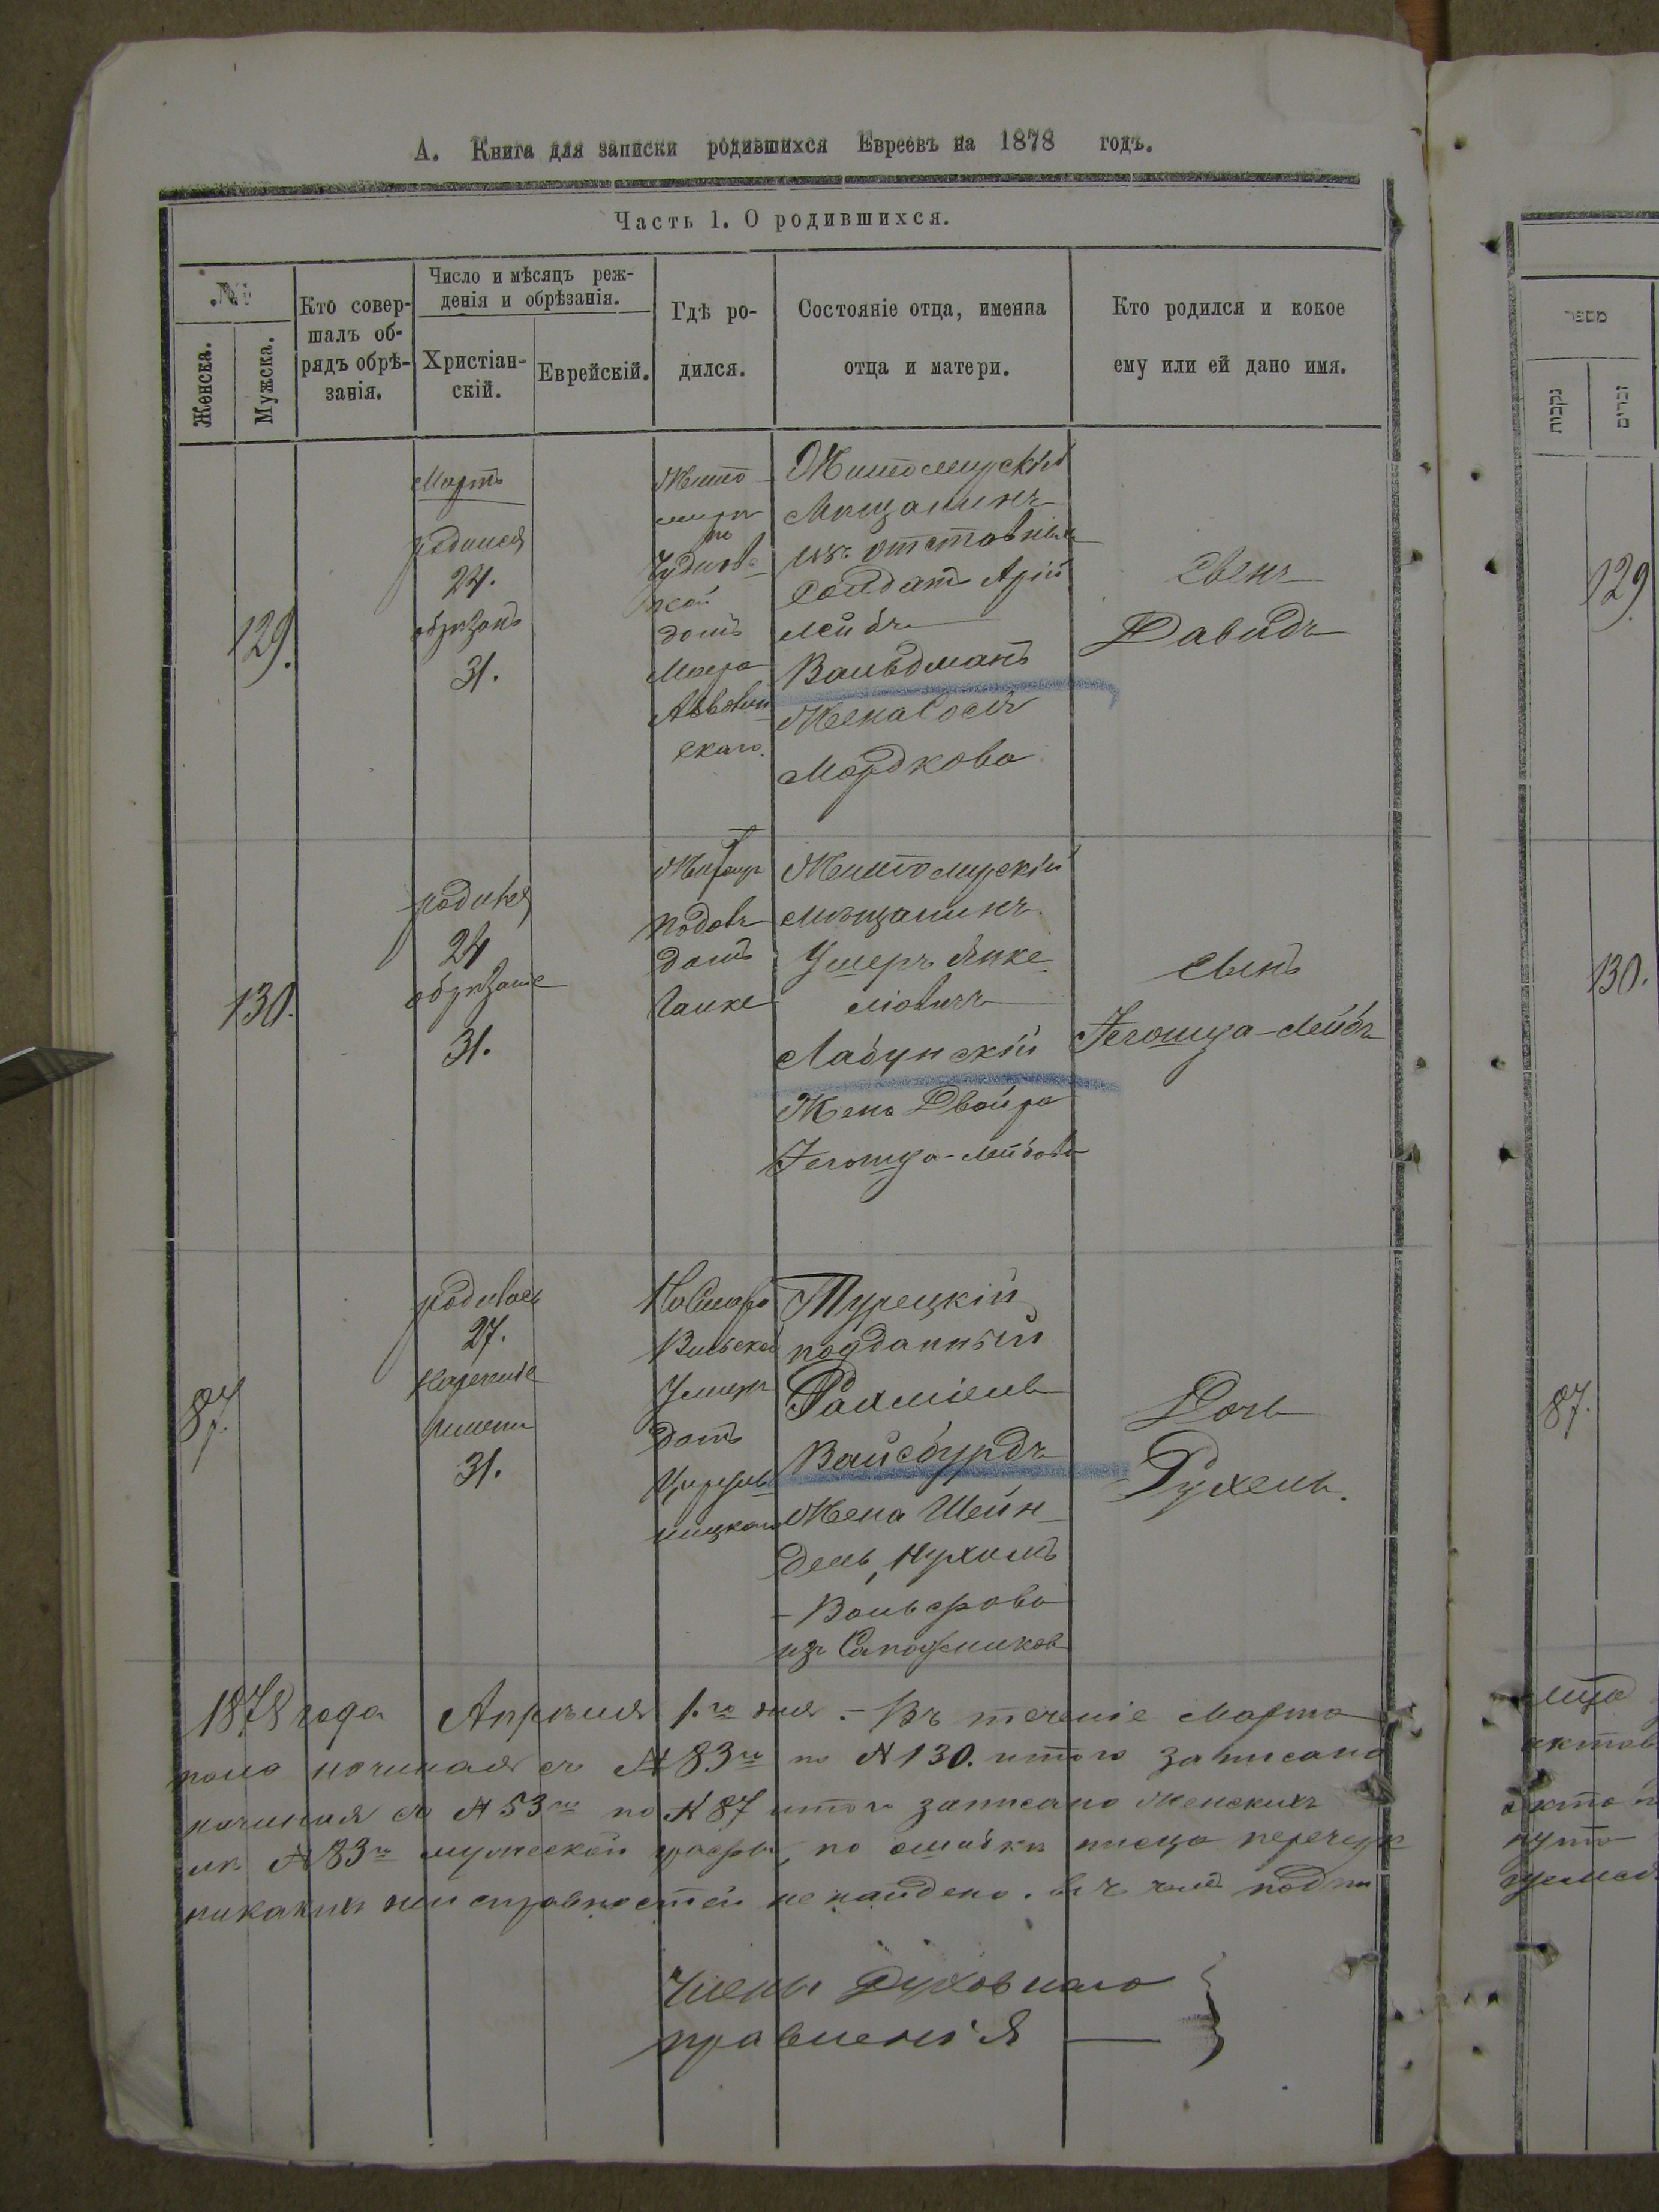 А. Книга для записки родившихся Евреевъ на 1878 годъ.
Часть 1. О родившихся.
№
Женска.
Мужска.
Кто совер-
шалъ об-
рядъ обрѣ-
занія.
Число и мѣсяцъ реж-
денія и обрѣзанія.
Христіан-
скій.
Еврейскій.
Гдѣ ро-
дился.
Состояніе отца, именна
отца и матери.
Кто родился и кокое
ему или ей дано имя.
129.
Мартъ
родился
24.
обрѣзанъ
31.
Жито
мирѣ
по
Чуднов
ской
домъ
Маера
скаго.
Житомирскій
Мѣщанинъ
изъ отставныхъ
Солдатъ Арій
Лейбъ
Вальдманъ
Жена Сося
Мордкова
Сынъ
Давидъ
130.
родился
24
обрѣзаніе
31.
домъ
Ганке
Житомирскій
мѣщанинъ
Ушеръ Янке
лiовичъ
Лабунскій
Жена Двойра
Іегошуа-Лейбова
Сынъ
Іегошуа-Лейбъ
87.
родилась
27.
нареченіе
имени
31.
Вильской
домъ
ницкаго
Турецкій
подданный
Рахміель
Вайсбурдъ
Жена Шейн
дель, Нухимъ
-Вольфова
изъ Сапожников
Дочь
Рухель.
1878 года Апрѣля 1.го дня. - Въ теченіе Марта
пола начиная съ №83го по №130. итого записано
начиная съ №53го по №87 итого записано женскихъ
ик №83го мужеской графы, по ошибкѣ писца перечерк
никакихъ неисправностей не найдено. въ чемъ подпи
Члены Духовнаго
правленія
מספר
נקבות
זכרים
129
130.
87.